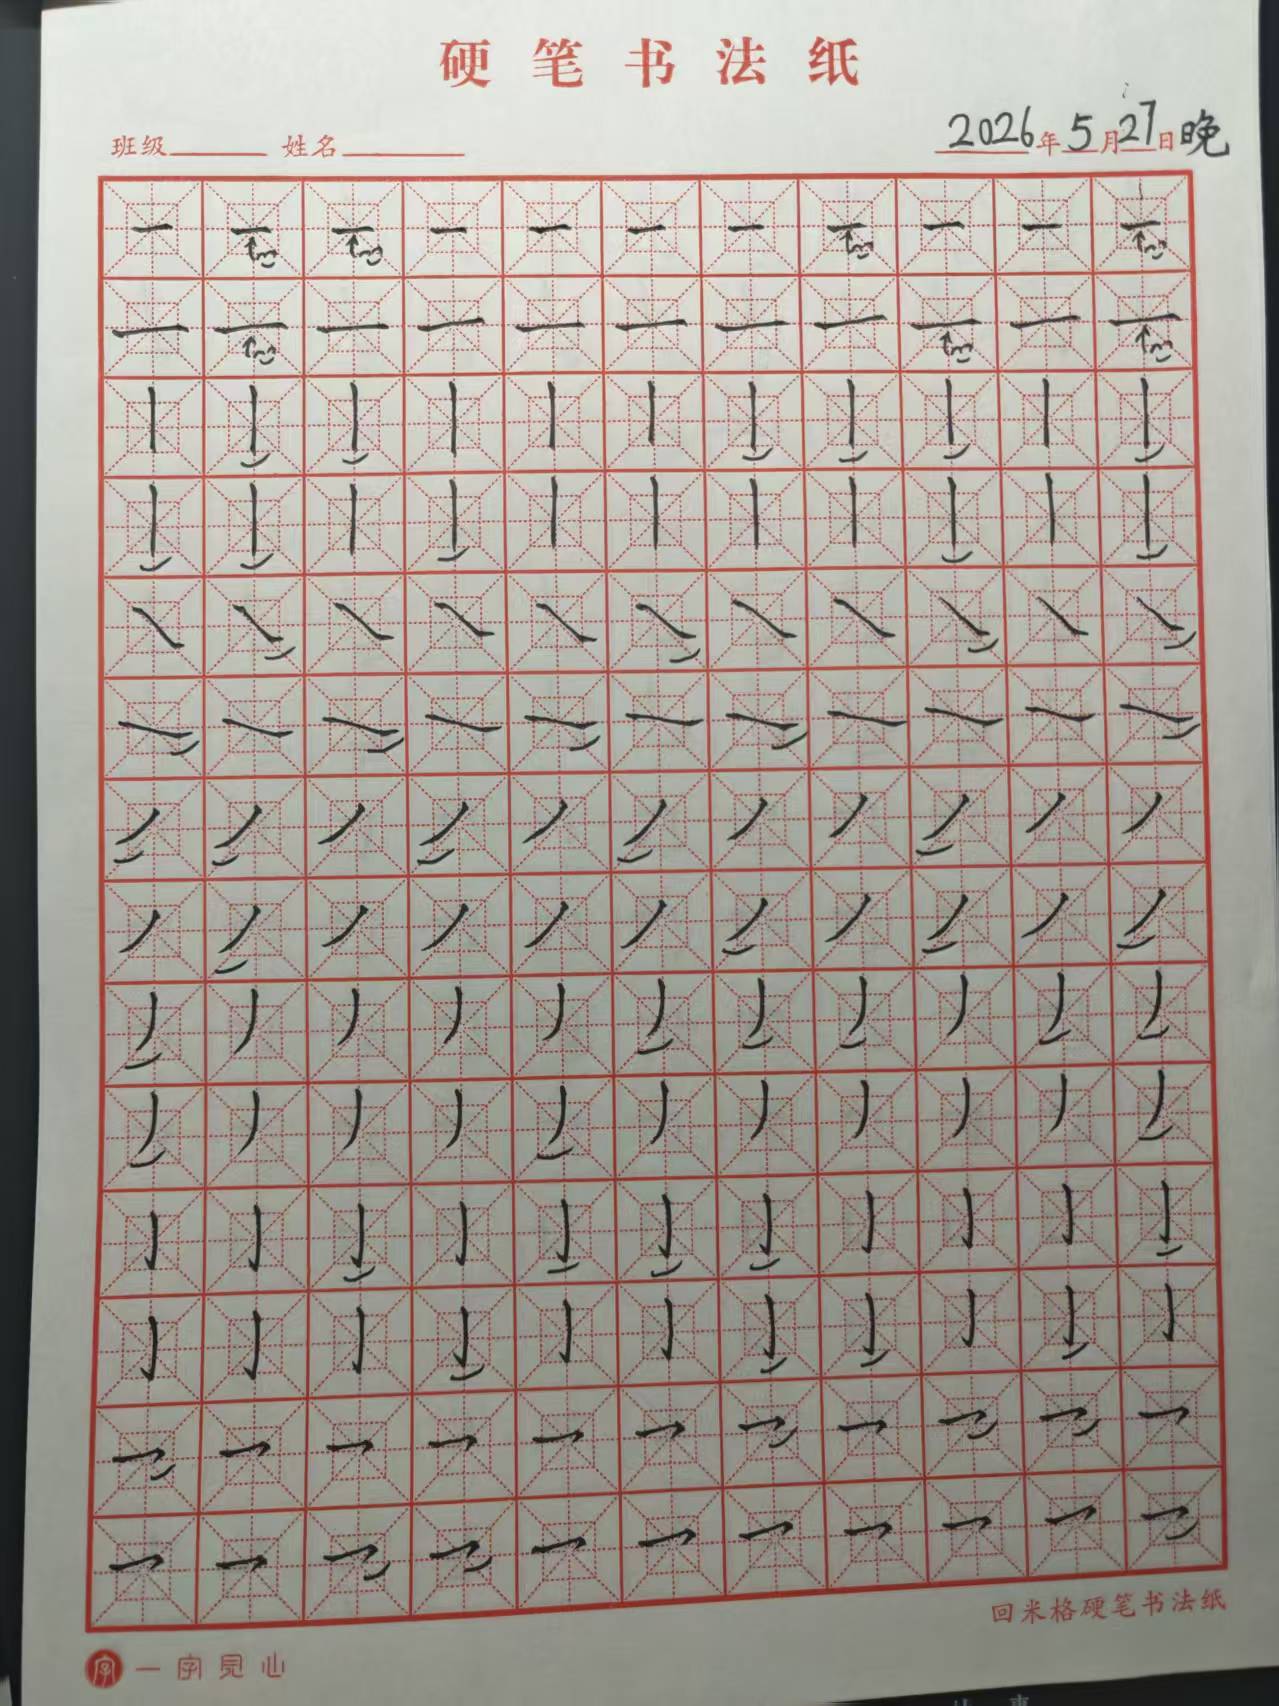 硬笔书法纸
班级 姓名 2026年5月27日晚
回米格硬笔书法纸
字 一字见心